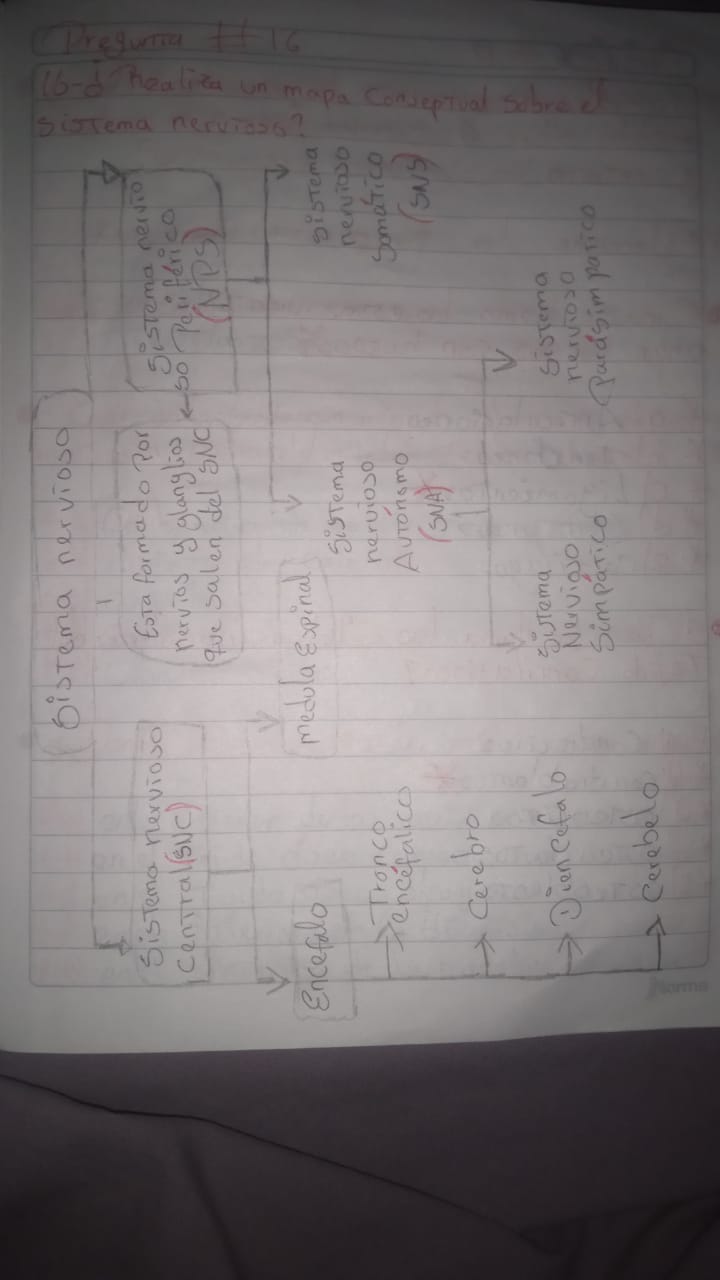 Pregunta # 16
16-¿ Realiza un mapa Conseptual sobre el
sistema nervioso?
Sistema nervioso
Sistema nervioso
Central (SNC)
Encefalo
Tronco
encéfalico
Cerebro
Diencefalo
Cerebelo
medula Espinal
Esta formado Por
nervios y glanglios
que salen del SNC
Sistema nervio
so Periférico
(NPS)
Sistema
nervioso
Autónomo
(SNA)
Sistema
Nervioso
Simpático
Sistema
nervioso
Parásimpatico
Sistema
nervioso
Somático
(SNS)
Norma